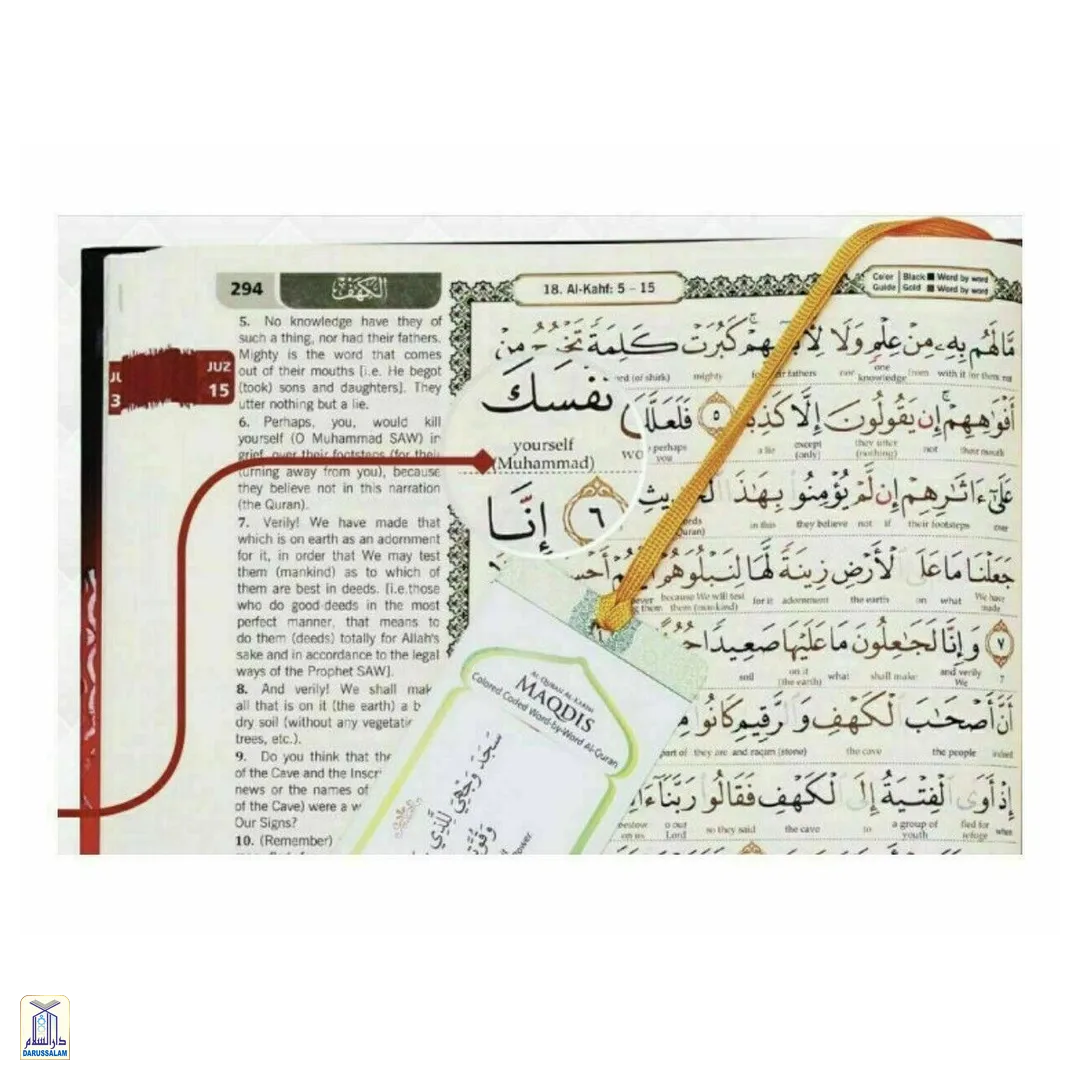 294
الكهف
18. Al-Kahf: 5 - 15
Color Guide
Black ■ Word by word
Gold ■ Word by word
JUZ
15
JU
3
5. No knowledge have they of
such a thing, nor had their fathers.
Mighty is the word that comes
out of their mouths [i.e. He begot
(took) sons and daughters]. They
utter nothing but a lie.
6. Perhaps, you, would kill
yourself (O Muhammad SAW) in
grief, over their footsteps (for their
turning away from you), because
they believe not in this narration
(the Quran).
7. Verily! We have made that
which is on earth as an adornment
for it, in order that We may test
them (mankind) as to which of
them are best in deeds. [i.e.those
who do good deeds in the most
perfect manner, that means to
do them (deeds) totally for Allah's
sake and in accordance to the legal
ways of the Prophet SAW].
8. And verily! We shall mak
all that is on it (the earth) a b
dry soil (without any vegetati
trees, etc.).
9. Do you think that the
of the Cave and the Inscri
news or the names of
of the Cave) were a w
Our Signs?
10. (Remember)
مَّا لَهُم بِهِۦ مِنْ عِلْمٍ وَلَا كَبُرَتْ كَلِمَةً تَخْرُجُ مِنْ
mighty fathers nor one knowledge from with it for them not
أَفْوَٰهِهِمْ ۚ إِن يَقُولُونَ إِلَّا ٥ فَلَعَلَّكَ
perhaps you a lie except (only) they utter (nothing) not their mouth
نَفْسَكَ
yourself
(Muhammad)
٦ إِنَّا
عَلَىٰٓ ءَاثَٰرِهِمْ إِن لَّمْ يُؤْمِنُوا۟ بِهَٰذَا
in this they believe not if their footsteps over
جَعَلْنَا مَا عَلَى الْأَرْضِ زِينَةً لَّهَا لِنَبْلُوَهُمْ
because We will test them (mankind) for it adornment the earth on what We have made
٧ وَإِنَّا لَجَٰعِلُونَ مَا عَلَيْهَا صَعِيدًا
soil on it (the earth) what shall make and verily We 7
أَنَّ أَصْحَٰبَ الْكَهْفِ وَالرَّقِيمِ كَانُوا۟
part of they are and raqim (stone) the cave the people indeed
إِذْ أَوَى الْفِتْيَةُ إِلَى الْكَهْفِ فَقَالُوا۟ رَبَّنَآ
bestow on us o our Lord so they said the cave to a group of youth fled for refuge when
AL-QURAN AL-KARIM
MAQDIS
Colored Coded Word-by-Word Al-Quran
سَجَدَ وَجْهِيَ لِلَّذِي
دار السلام
DARUSSALAM